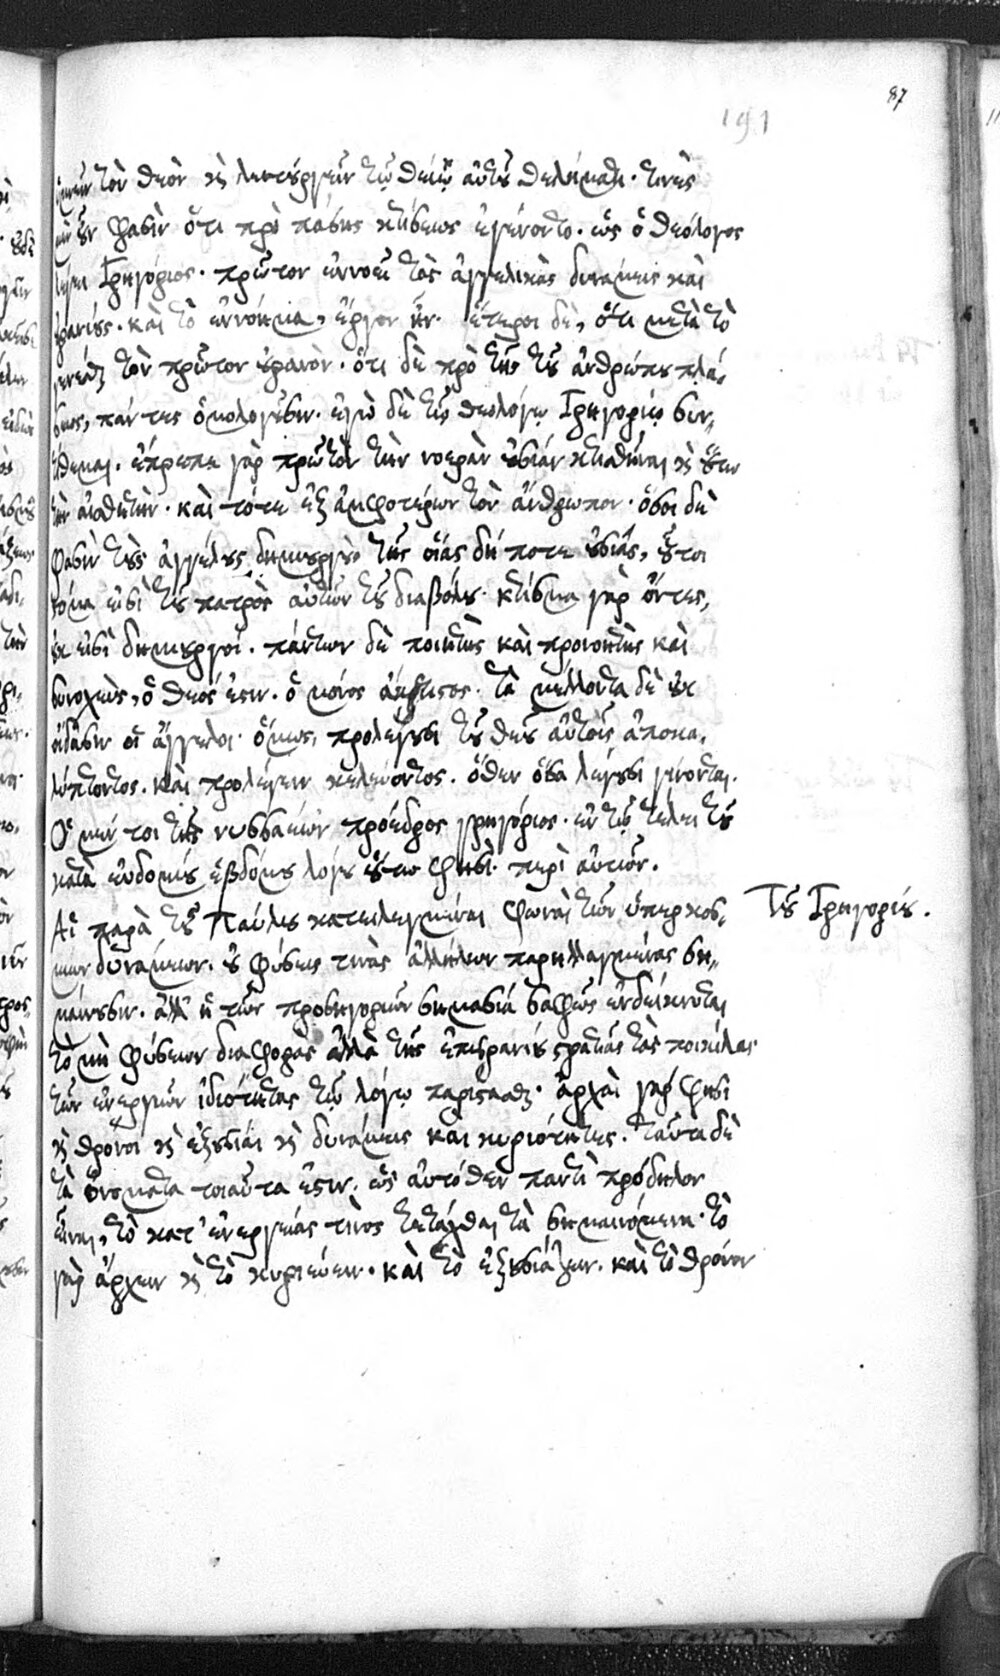 87
191
ὑμνεῖν τὸν θεὸν καὶ λειτουργεῖν τῷ θείῳ αὐτοῦ θελήματι· τινὲς
μὲν οὖν φασὶν ὅτι πρὸ πάσης κτίσεως ἐγένοντο· ὡς ὁ θεολόγος
λέγει Γρηγόριος· πρῶτον ἐννοεῖ τὰς ἀγγελικὰς δυνάμεις καὶ
οὐρανίους· καὶ τὸ ἐννόημα, ἔργον ἦν· ἕτεροι δὲ, ὅτι μετὰ τὸ
γενέσθαι τὸν πρῶτον οὐρανὸν· ὅτι δὲ πρὸ τῆς τοῦ ἀνθρώπου πλά-
σεως, πάντες ὁμολογοῦσιν· ἐγὼ δὲ τῷ θεολόγῳ Γρηγορίῳ συν-
τίθεμαι· ἔπρεπε γὰρ πρῶτον τὴν νοερὰν οὐσίαν κτισθῆναι καὶ οὕτω
τὴν αἰσθητὴν· καὶ τότε ἐξ ἀμφοτέρων τὸν ἄνθρωπον· ὅσοι δὲ
φασὶν τοὺς ἀγγέλους δημιουργοὺς τῆς οἱάς δή ποτε οὐσίας, οὗτοι
στόμα εἰσὶ τοῦ πατρὸς αὐτῶν τοῦ διαβόλου· κτίσμα γὰρ ὄντες,
οὐκ εἰσὶ δημιουργοί· πάντων δὲ ποιητὴς καὶ προνοητὴς καὶ
συνοχεὺς, ὁ θεός ἐστιν· ὁ μόνος ἄκτιστος· τὰ μέλλοντα δὲ οὐκ
οἴδασιν οἱ ἄγγελοι· ὅμως, προλέγουσι τοῦ θεοῦ αὐτοῖς ἀποκα-
λύπτοντος· καὶ προλέγειν κελεύοντος· ὅθεν ὅσα λέγουσι γίνονται·
Ὁ μέν τοι τῆς νυσσαέων πρόεδρος γρηγόριος· ἐν τῷ τέλει τοῦ
κατὰ εὐνομίου ἑβδόμου λόγου οὕτω φησὶ περὶ αὐτῶν.
Αἱ παρὰ τοῦ Παύλου κατειλεγμέναι φωναὶ τῶν ὑπερκοσ-
μίων δυνάμεων· οὐ φύσεις τινὰς ἀλλήλων παρηλλαγμένας ση-
μαίνουσιν· ἀλλ' ἡ τῶν προσηγοριῶν σημασία σαφῶς ἐνδείκνυται
τὸ μὴ φύσεων διαφορὰς ἀλλὰ τῆς ἐπουρανίου στρατιᾶς τὰς ποικίλας
τῶν ἐνεργειῶν ἰδιότητας τῷ λόγῳ παρίστασθαι· ἀρχαὶ γάρ φησι
καὶ θρόνοι καὶ ἐξουσίαι καὶ δυνάμεις καὶ κυριότητες· ταῦτα δὲ
τὰ ὀνόματα τοιαῦτα ἐστιν· ὡς αὐτόθεν παντὶ πρόδηλον
εἶναι, τὸ κατ' ἐνεργείας τινος τετάχθαι τὰ σημαινόμενα· τὸ
γὰρ ἄρχειν καὶ τὸ κυριεύειν· καὶ τὸ ἐξουσιάζειν· καὶ τὸ θρόνον
Τοῦ Γρηγορίου.